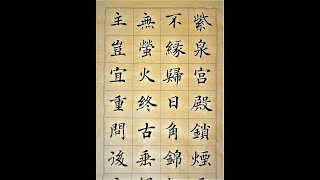 紫泉宮殿鎖煙
不緣歸日角錦
無螢火終古垂
主豈宜重問後